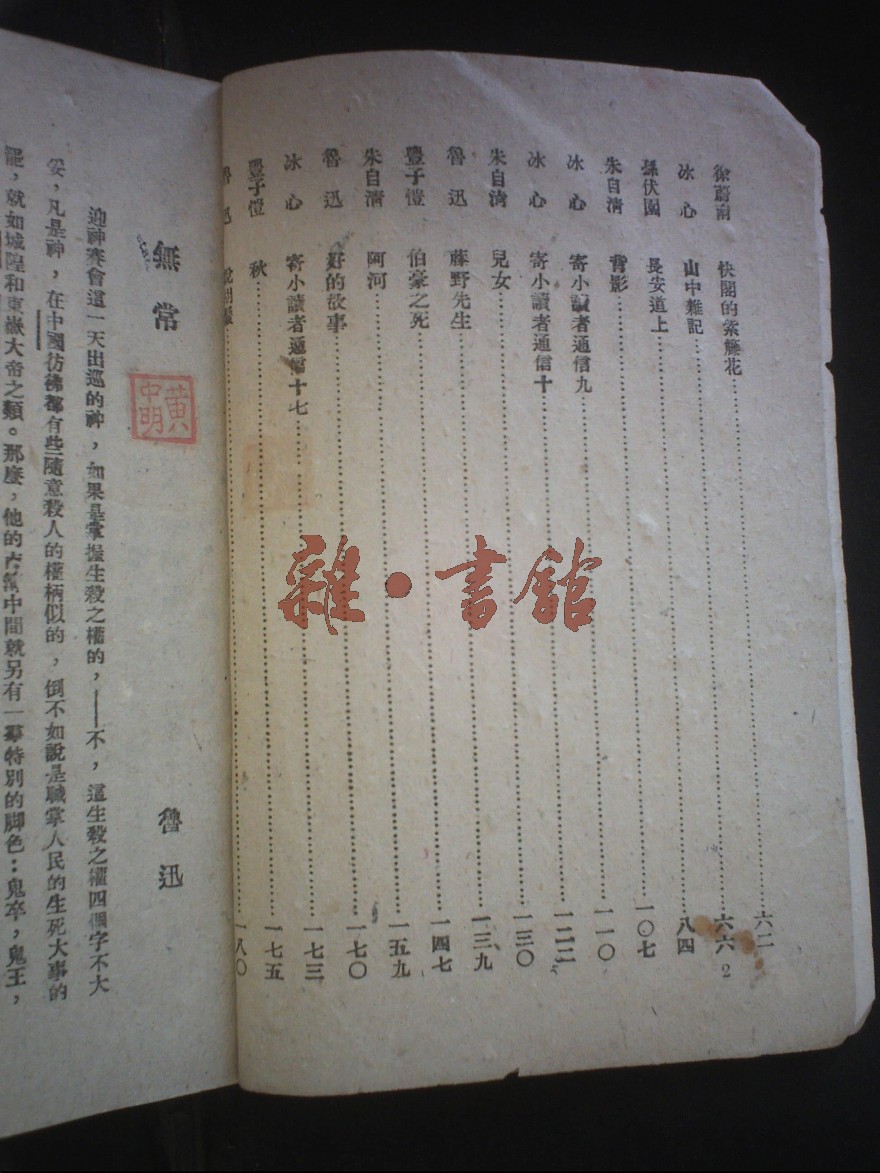 徐蔚南 快閣的紫籐花 六二
冰心 山中雜記 六六
孫伏園 長安道上 八四
朱自清 背影 一〇七
冰心 寄小讀者通信九 一一〇
冰心 寄小讀者通信十 一二二
朱自清 兒女 一三〇
魯迅 藤野先生 一三九
豐子愷 伯豪之死 一四七
朱自清 阿河 一五九
魯迅 好的故事 一七〇
冰心 寄小讀者通信十七 一七三
豐子愷 秋 一七五
魯迅 一八〇
2
雜·書館
無常
黃中明
魯迅
迎神賽會這一天出巡的神，如果是掌握生殺之權的，——不，這生殺之權四個字不大
妥，凡是神，在中國彷彿都有些隨意殺人的權柄似的，倒不如說是職掌人民的生死大事的
罷，就如城隍和東嶽大帝之類。那麼，他的中間就另有一羣特別的脚色：鬼卒，鬼王，